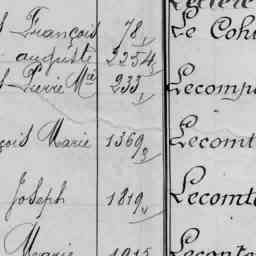 François 78 Le Coh
auguste 2254
Pierre Mie 233 Lecomp
çois Marie 1369 Lecomt
Joseph 1819 Lecomt
Marie 1915 Lecont